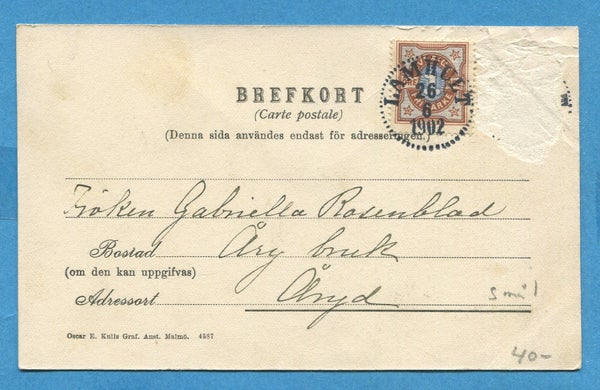 BREFKORT
(Carte postale)
(Denna sida användes endast för adresseringen.)
LAMHULT
26
6
1902
Fröken Gabriella Rosenblad
Bostad Åry bruk
(om den kan uppgifvas)
Adressort Åryd
Smål
Oscar E. Kulls Graf. Anst. Malmö. 4587
40-